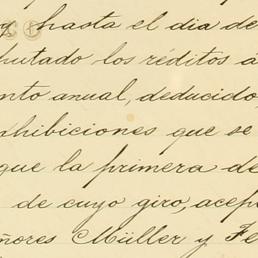 y hasta el dia de
putado los réditos á
nto anual, deducido,
xhibiciones que se
que la primera de
de cuyo giro, acep
ñores Müller y Fe